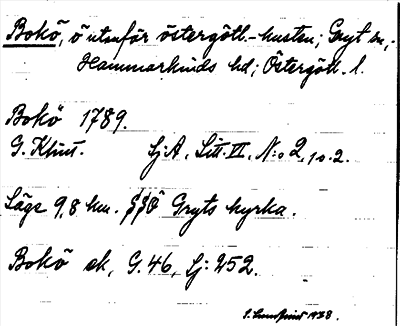 Bokö, ö utanför östergötl.-kusten; Gryt sn,;
Hammarkinds hd; Östergötl. l.
Bokö 1789.
G. Klint. Sj.A. Litt. II, N:o 2, 1 o. 2.
Läge 9,8 km. SSÖ Gryts kyrka.
Bokö sk, G. 46, Sj: 252.
1938.